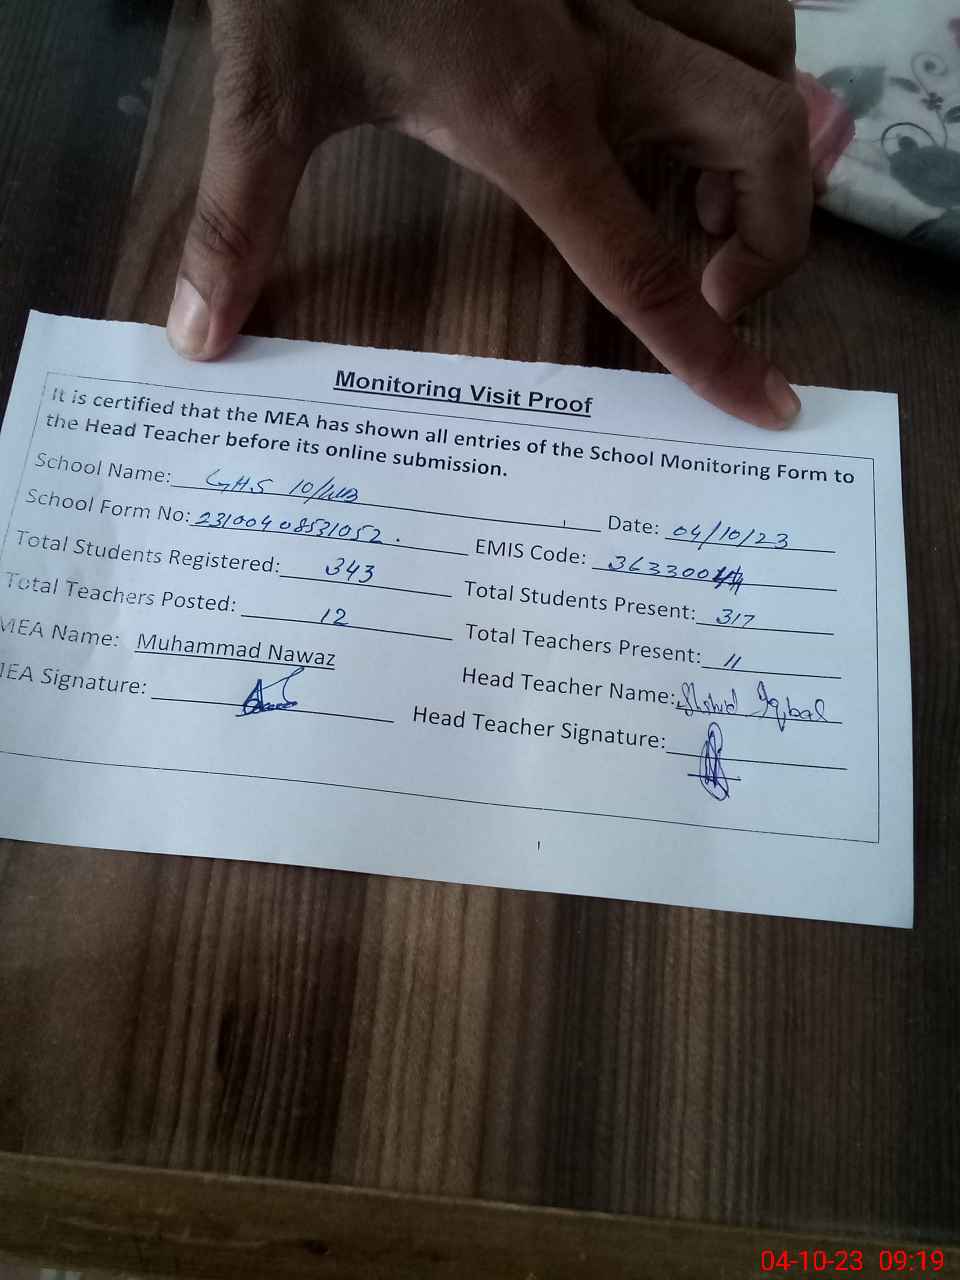 Monitoring Visit Proof
It is certified that the MEA has shown all entries of the School Monitoring Form to
the Head Teacher before its online submission.
School Name: GHS 10/WB Date: 04/10/23
School Form No: 23100408531052. EMIS Code: 363300
Total Students Registered: 343 Total Students Present: 317
Total Teachers Posted: 12 Total Teachers Present: 11
MEA Name: Muhammad Nawaz Head Teacher Name: Iqbal
MEA Signature: Head Teacher Signature:
04-10-23 09:19